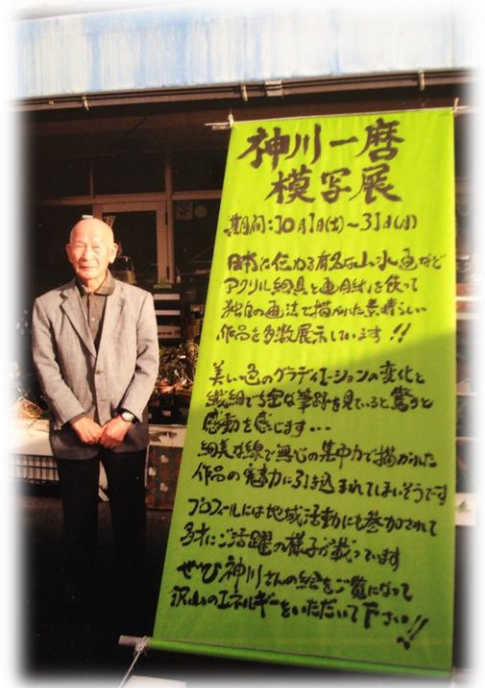 神川一磨
模写展
期間:10月1日(土)~31日(月)
日本に伝わる有名な山水画など
アクリル絵具と画用紙を使って
独自の画法で描かれた素晴らしい
作品を多数展示しています!!
美しい色のグラディエーションの変化と
繊細で緻密な筆跡を見ていると驚きと
感動を感じます・・・
細美な線で無心の集中力で描かれた
作品の魅力に引き込まれてしまいそうです
プロフィールには地域活動にも参加されて
多才にご活躍の様子が載っています
ぜひ神川さんの絵をご覧になって
沢山のエネルギーをいただいて下さい!!